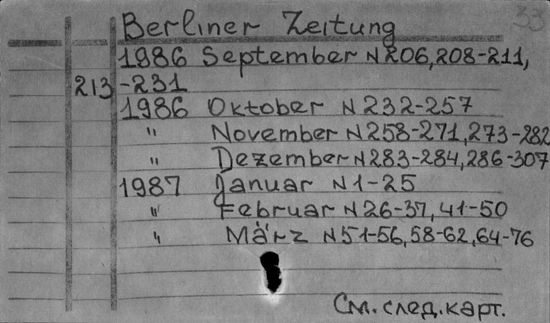 33
Berliner Zeitung
1986 September N 206, 208-211,
213-231
1986 Oktober N 232-257
" November N 258-271, 273-282
" Dezember N 283-284, 286-307
1987 Januar N 1-25
" Februar N 26-37, 41-50
" März N 51-56, 58-62, 64-76
См. след. карт.